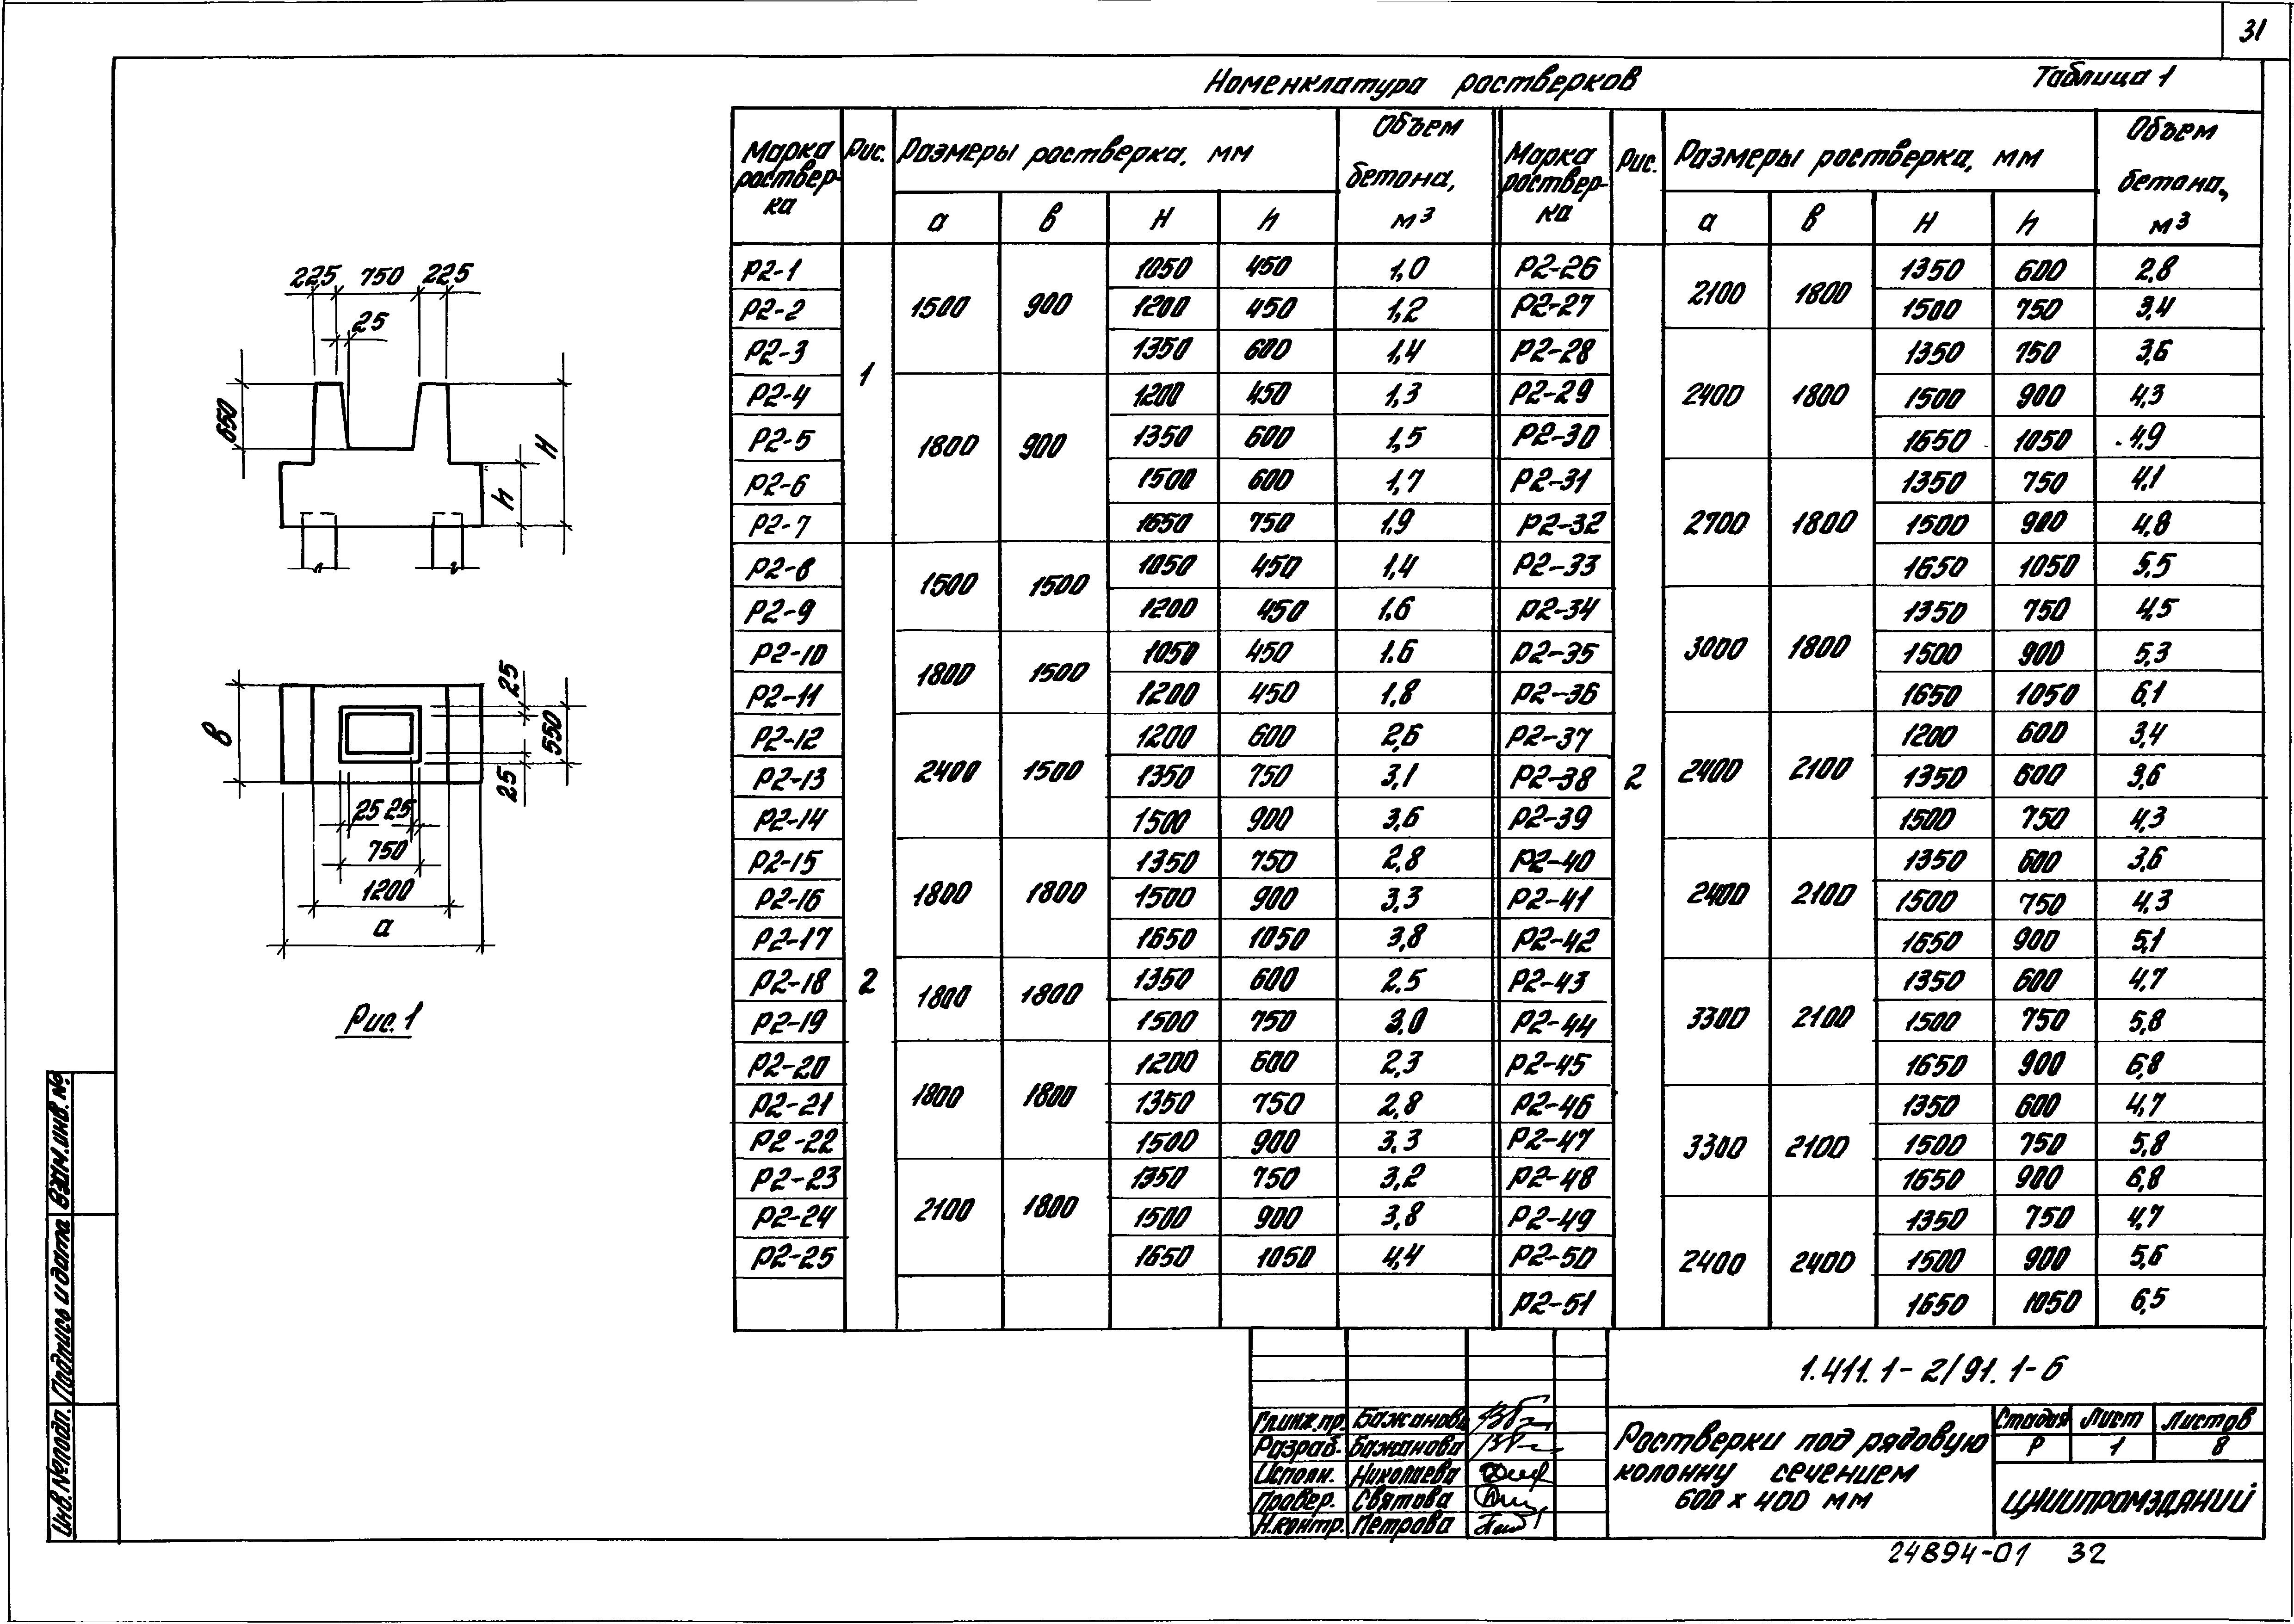 31
Номенклатура ростверков
Таблица 1
Марка роствер- ка Рис. Размеры ростверка, мм Объем бетона, м³ Марка роствер- ка Рис. Размеры ростверка, мм Объем бетона, м³
а в H h а в H h
Р2-1 1 1500 900 1050 450 1,0 Р2-26 2 2100 1800 1350 600 2,8
Р2-2 1200 450 1,2 Р2-27 1500 750 3,4
Р2-3 1350 600 1,4 Р2-28 2400 1800 1350 750 3,6
Р2-4 1800 900 1200 450 1,3 Р2-29 1500 900 4,3
Р2-5 1350 600 1,5 Р2-30 1650 1050 4,9
Р2-6 1500 600 1,7 Р2-31 2700 1800 1350 750 4,1
Р2-7 1650 750 1,9 Р2-32 1500 900 4,8
Р2-8 2 1500 1500 1050 450 1,4 Р2-33 1650 1050 5,5
Р2-9 1200 450 1,6 Р2-34 3000 1800 1350 750 4,5
Р2-10 1800 1500 1050 450 1.6 Р2-35 1500 900 5,3
Р2-11 1200 450 1,8 Р2-36 1650 1050 6,1
Р2-12 2400 1500 1200 600 2,6 Р2-37 2400 2100 1200 600 3,4
Р2-13 1350 750 3,1 Р2-38 1350 600 3,6
Р2-14 1500 900 3,6 Р2-39 1500 750 4,3
Р2-15 1800 1800 1350 750 2,8 Р2-40 2400 2100 1350 600 3,6
Р2-16 1500 900 3,3 Р2-41 1500 750 4,3
Р2-17 1650 1050 3,8 Р2-42 1650 900 5,1
Р2-18 1800 1800 1350 600 2.5 Р2-43 3300 2100 1350 600 4,7
Р2-19 1500 750 3.0 Р2-44 1500 750 5,8
Р2-20 1800 1800 1200 600 2,3 Р2-45 1650 900 6,8
Р2-21 1350 750 2,8 Р2-46 3300 2100 1350 600 4,7
Р2-22 1500 900 3,3 Р2-47 1500 750 5,8
Р2-23 2100 1800 1350 750 3,2 Р2-48 1650 900 6,8
Р2-24 1500 900 3,8 Р2-49 2400 2400 1350 750 4,7
Р2-25 1650 1050 4,4 Р2-50 1500 900 5,6
Р2-51 1650 1050 6,5
225 750 225
25
650
H
h
25
в
550
25
25 25
750
1200
а
Рис. 1
Инв.№подл. Подпись и дата Взам.инв.№
1.411.1-2/91.1-6
Гл.инж.пр. Бажанова
Разраб. Бажанова
Исполн. Николаева
Провер. Святова
Н.контр. Петрова
Ростверки под рядовую
колонну сечением
600 х 400 мм
Стадия Лист Листов
Р 1 8
ЦНИИПРОМЗДАНИЙ
24894-01 32